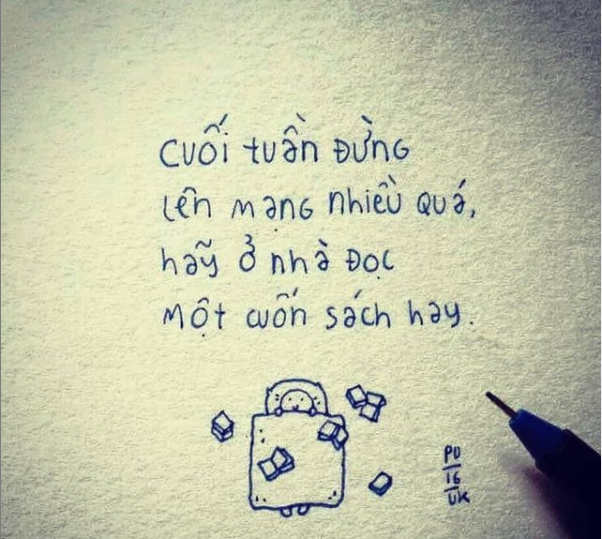 Cuối tuần đừng
lên mạng nhiều quá,
hãy ở nhà đọc
một cuốn sách hay.
PU
16
UK